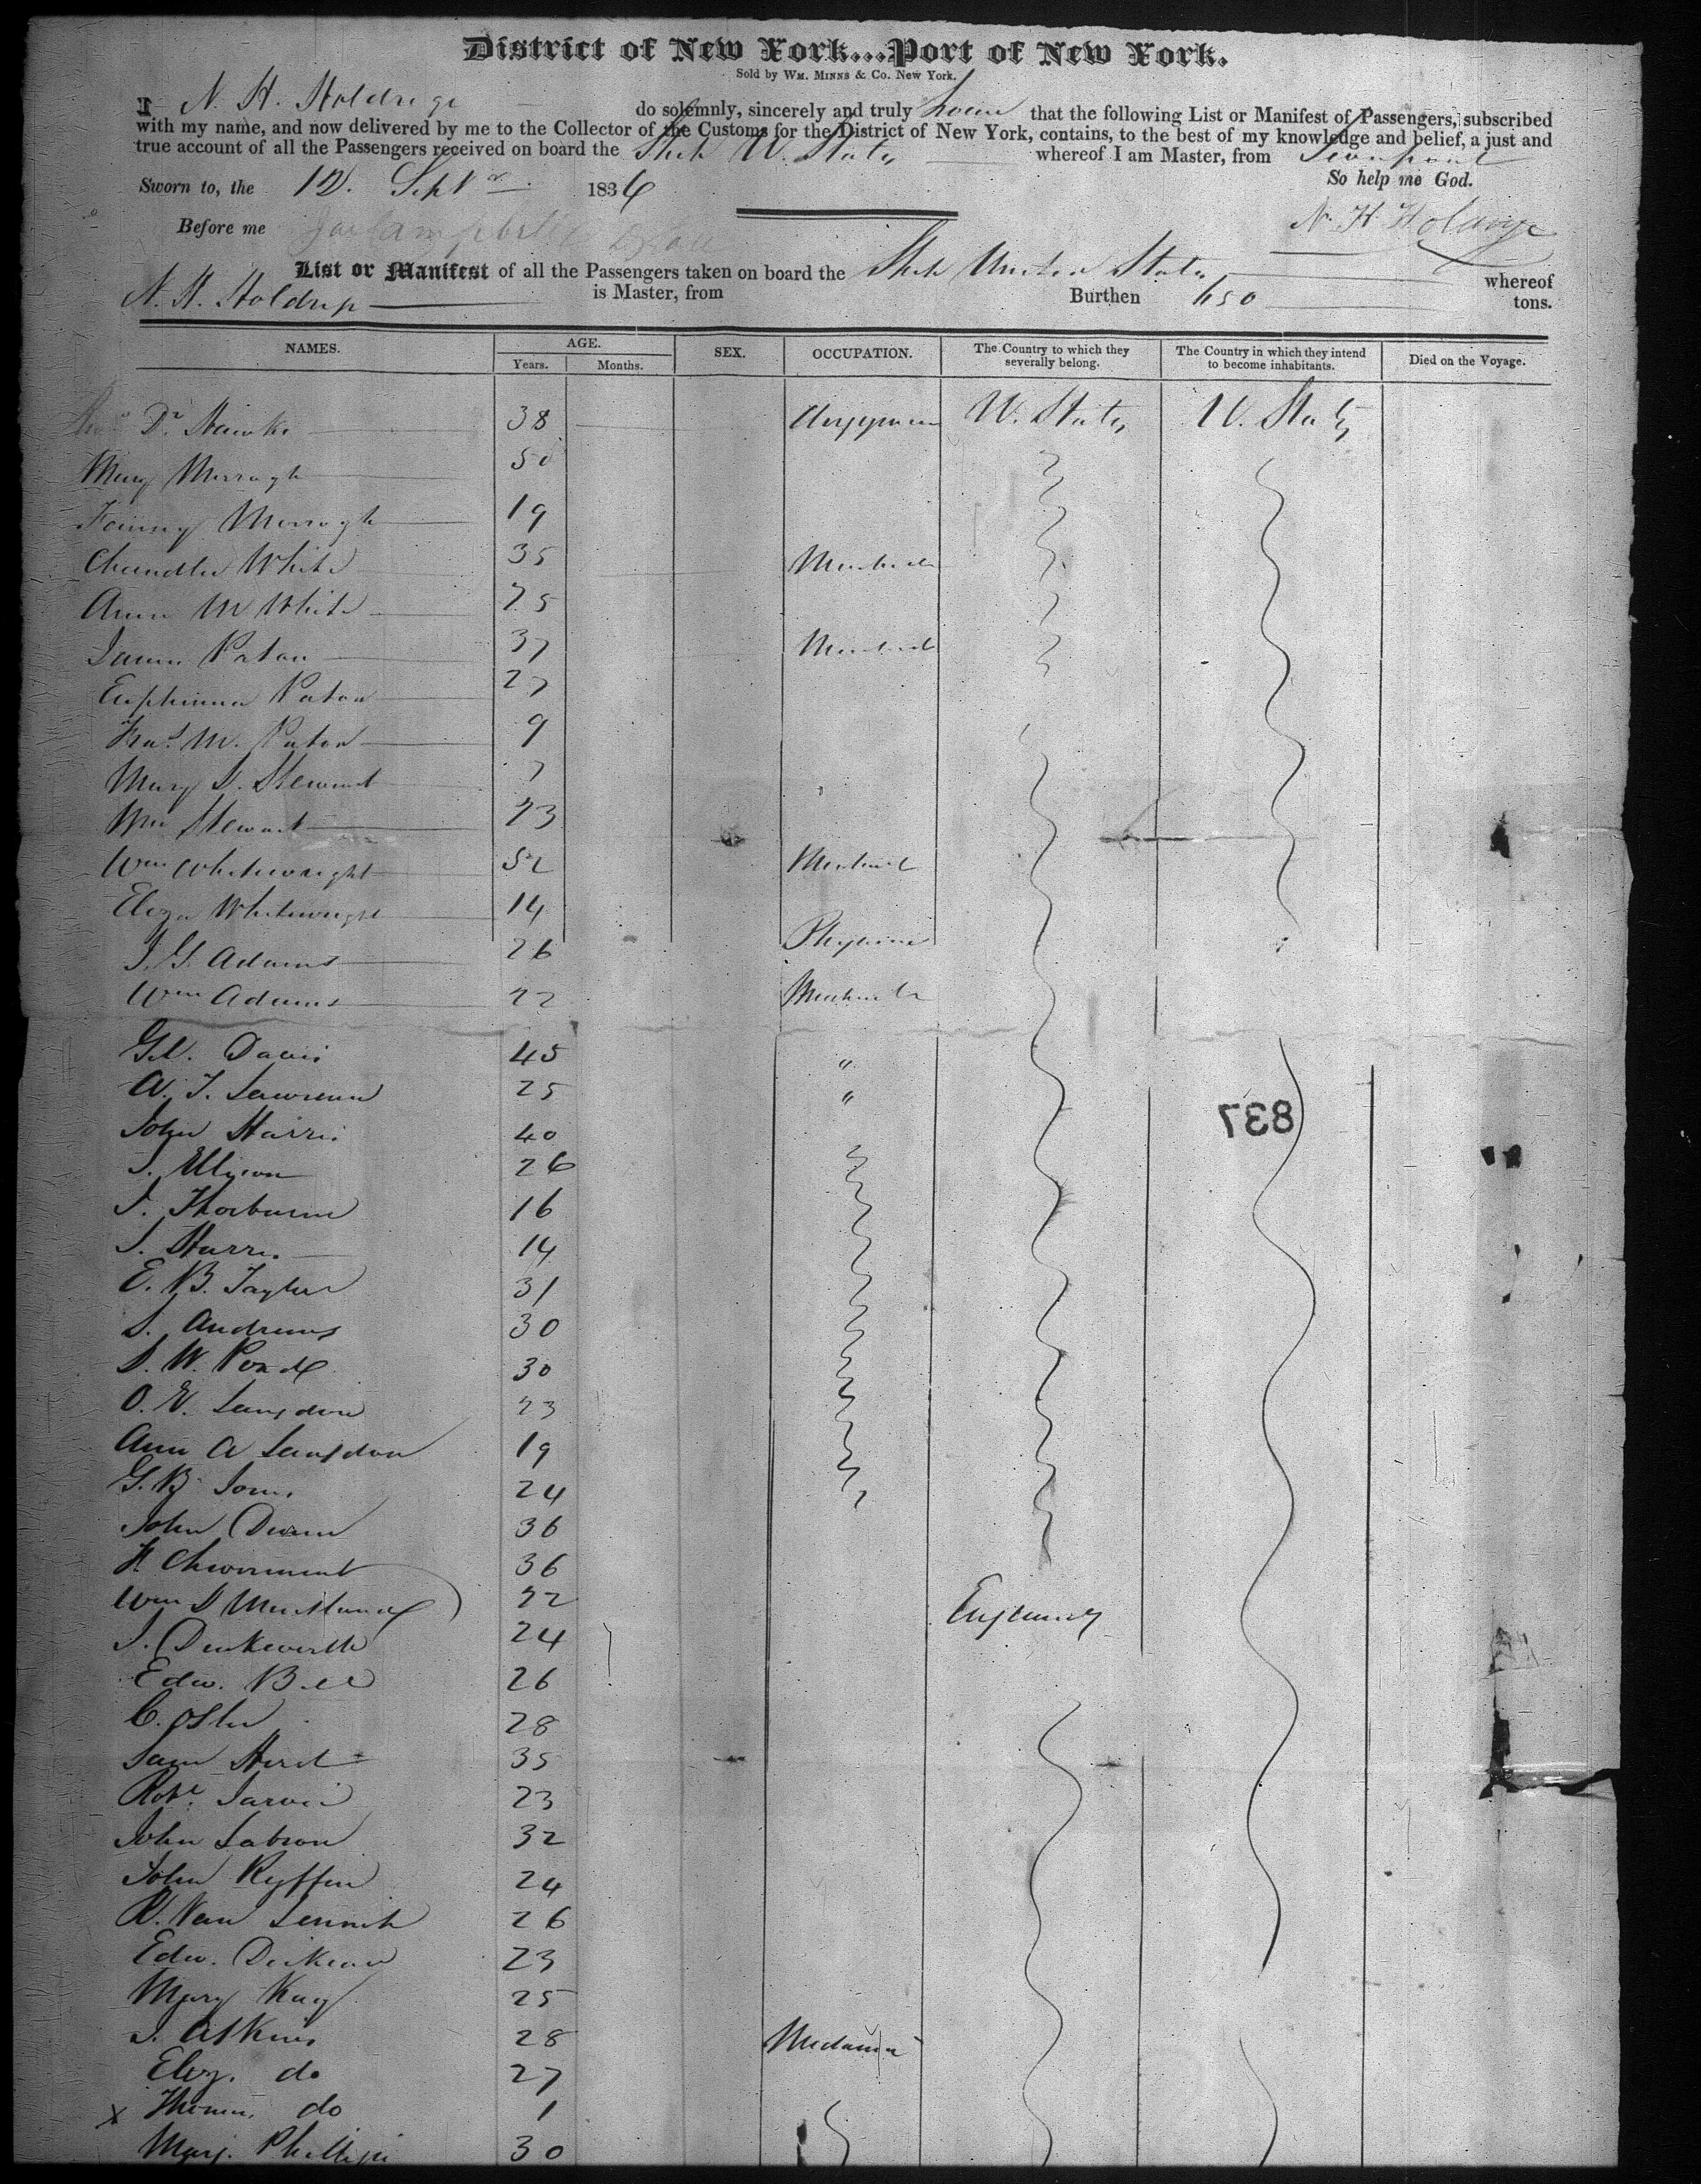 District of New York...Port of New York.
Sold by WM. MINNS & Co. New York.
I N. H. Holdrege do solemnly, sincerely and truly Swear that the following List or Manifest of Passengers, subscribed
with my name, and now delivered by me to the Collector of the Customs for the District of New York, contains, to the best of my knowledge and belief, a just and
true account of all the Passengers received on board the Ship U. States whereof I am Master, from Liverpool
So help me God.
Sworn to, the 12. Septr 1836
N. H. Holdrege
Before me
List or Manifest of all the Passengers taken on board the Ship United States whereof
N. H. Holdrege is Master, from Burthen 650 tons.
NAMES. AGE. SEX. OCCUPATION. The Country to which they severally belong. The Country in which they intend to become inhabitants. Died on the Voyage.
Years. Months.
Dr Hawks 38 Clergyman U. States U. States
Mary Murrogh 50
Fanny Murrogh 19
Chandler White 35 Merchant
Ann M White 25
James Paton 37 Merchant
Euphemia Paton 27
Thos. M. Paton 9
Mary S. Stewart 7
Wm Stewart 23
Wm Whitewright 52 Merchant
Eliza Whitewright 14
J. G. Adams 26 Physician
Wm Adams 22 Merchant
Davis 45 "
A. T. Lawrence 25 "
John Harris 40
J. Ellison 26
J. Thorburn 16
J. Harris 14
E. B. Taylor 31
S. Andrews 30
S. W. Pond 30
O. E. Langdon 23
Ann A Langdon 19
G. B. Jones 24
John Dunn 36
H 36
Wm S Maitland 22 England
J. Duckworth 24
Edw. Bell 26
C. Osler 28
Sam Hird 35
Robt. Jarvis 23
John Labron 32
John Kyffin 24
R. Van Lennep 26
Edw. 23
Mary Kay 25
J. Atkins 28
Eliz. do 27
x Thomas do 1
Mary. Phillips 30
837